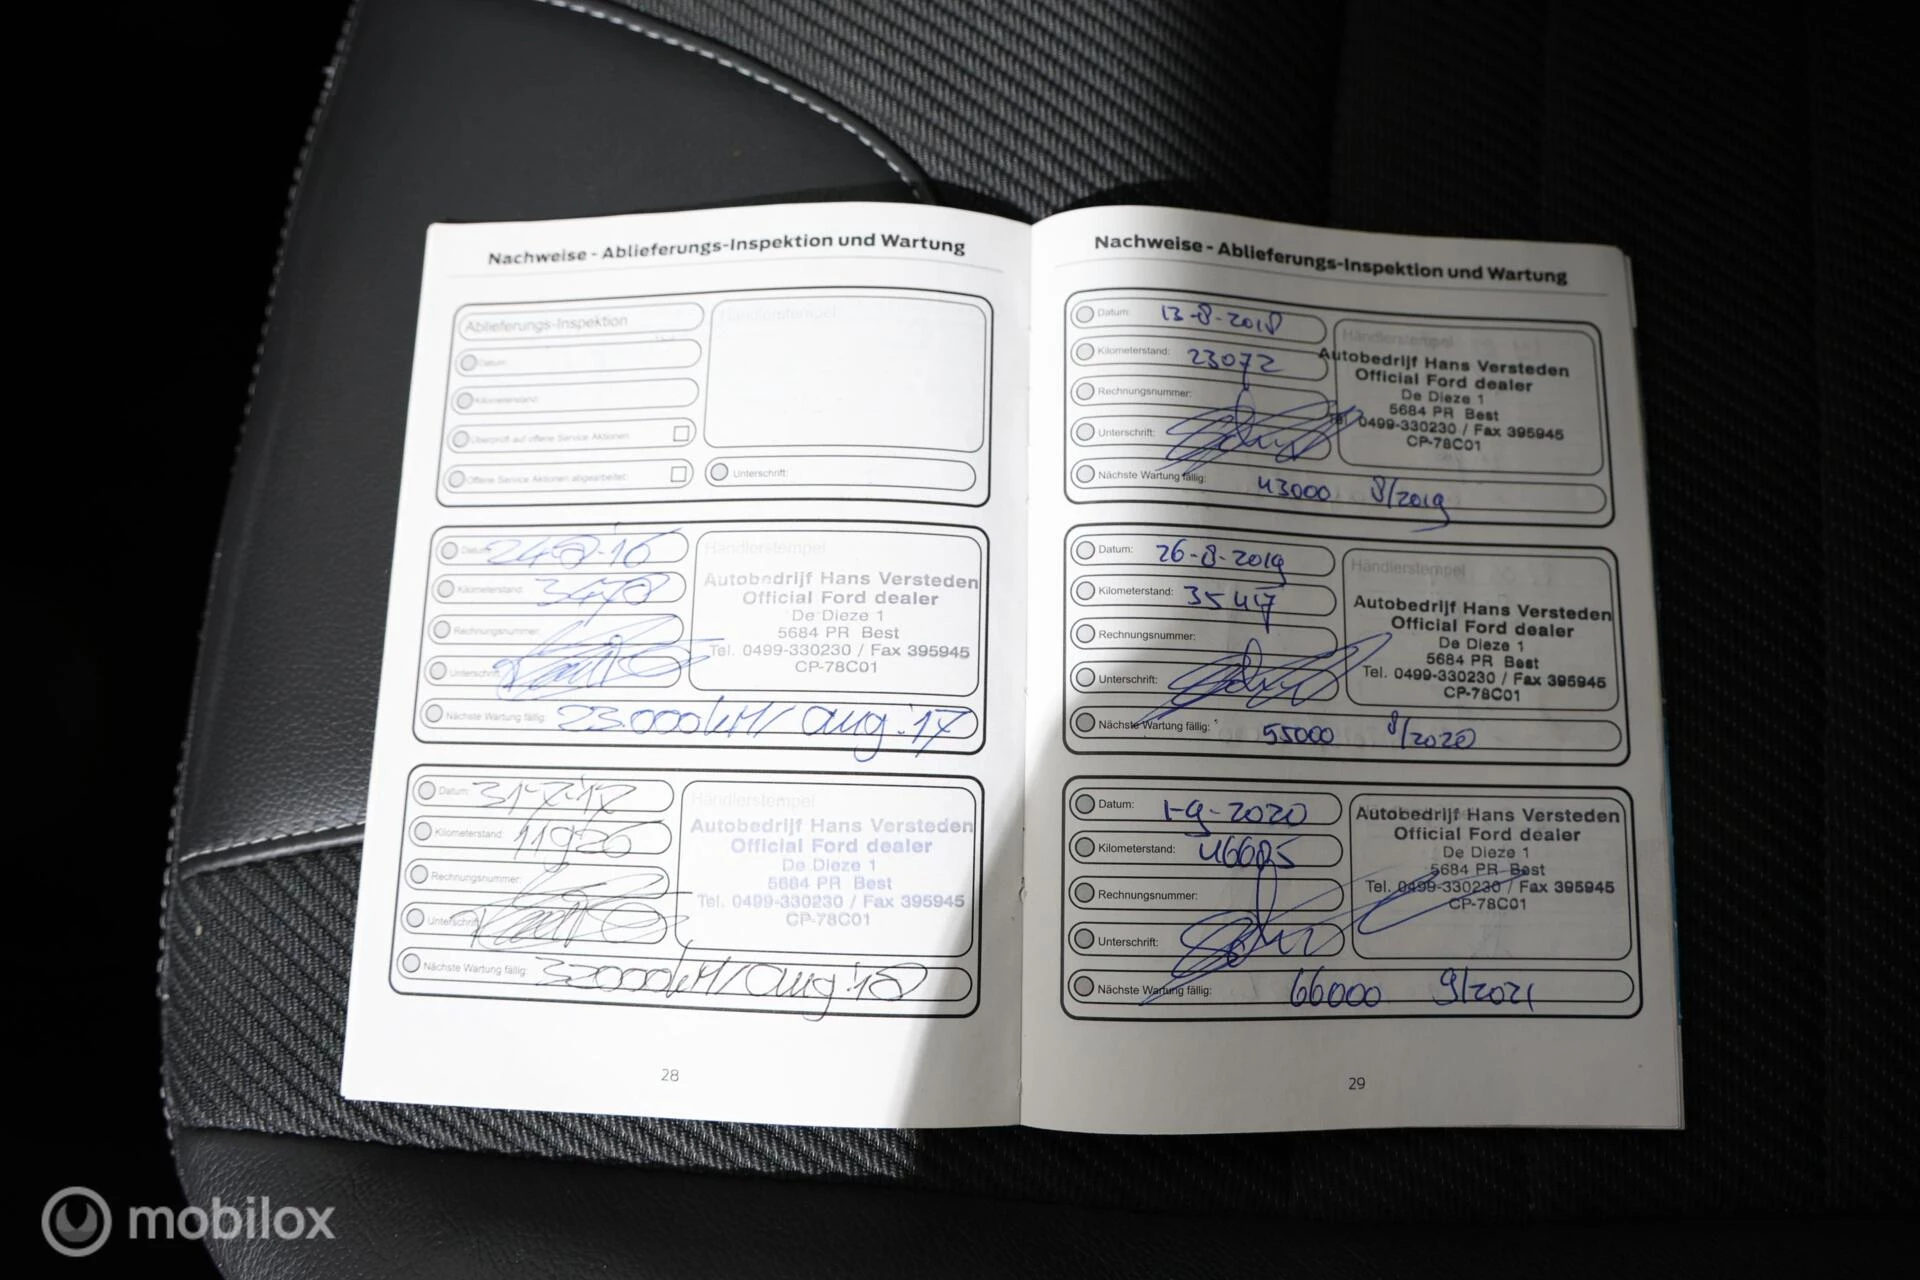 Nachweise - Ablieferungs-Inspektion und Wartung
Ablieferungs-Inspektion
Händlerstempel
Datum:
Kilometerstand:
Überprüft auf offene Service Aktionen:
Offene Service Aktionen abgearbeitet:
Unterschrift:
Datum: 24-8-'16
Kilometerstand: 3478
Rechnungsnummer:
Unterschrift:
Nächste Wartung fällig: 23.000kM/ aug.'17
Händlerstempel
Autobedrijf Hans Versteden
Official Ford dealer
De Dieze 1
5684 PR Best
Tel. 0499-330230 / Fax 395945
CP-78C01
Datum: 31-7-'17
Kilometerstand: 11926
Rechnungsnummer:
Unterschrift:
Nächste Wartung fällig: 32000kM/ aug '18
Händlerstempel
Autobedrijf Hans Versteden
Official Ford dealer
De Dieze 1
5684 PR Best
Tel. 0499-330230 / Fax 395945
CP-78C01
28
Nachweise - Ablieferungs-Inspektion und Wartung
Datum: 13-8-2018
Kilometerstand: 23072
Rechnungsnummer:
Unterschrift:
Nächste Wartung fällig: 43000 8/2019
Händlerstempel
Autobedrijf Hans Versteden
Official Ford dealer
De Dieze 1
5684 PR Best
Tel. 0499-330230 / Fax 395945
CP-78C01
Datum: 26-8-2019
Kilometerstand: 35417
Rechnungsnummer:
Unterschrift:
Nächste Wartung fällig: 55000 8/2020
Händlerstempel
Autobedrijf Hans Versteden
Official Ford dealer
De Dieze 1
5684 PR Best
Tel. 0499-330230 / Fax 395945
CP-78C01
Datum: 1-9-2020
Kilometerstand: 46685
Rechnungsnummer:
Unterschrift:
Nächste Wartung fällig: 66000 9/2021
Autobedrijf Hans Versteden
Official Ford dealer
De Dieze 1
5684 PR Best
Tel. 0499-330230 / Fax 395945
CP-78C01
29
mobilox